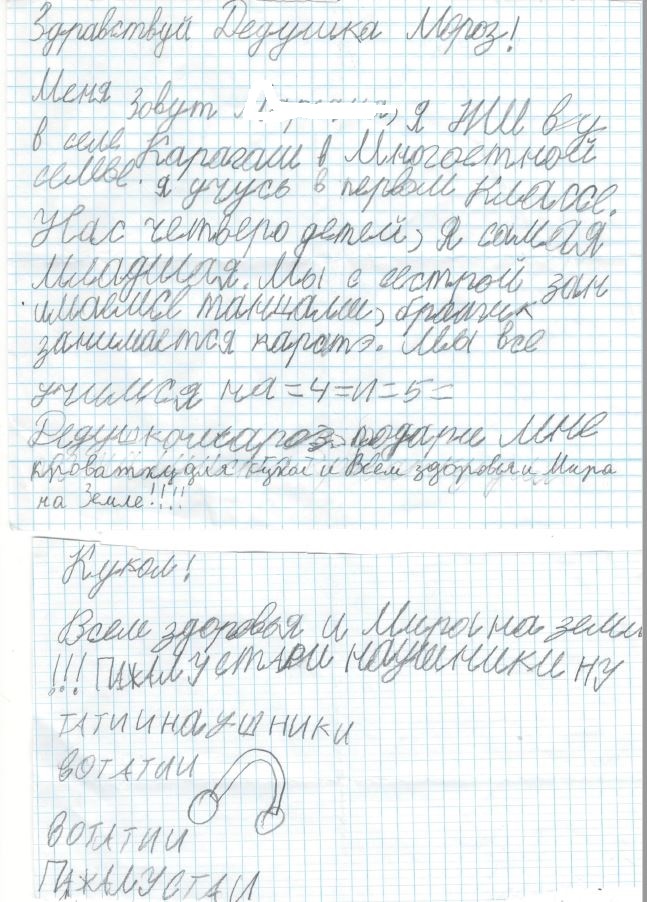 Здравствуй Дедушка Мороз!
Меня зовут я жи ву
в селе Карагаш в Многоетной
семье. я учусь в первом классе.
Нас четверо детей, я самая
младшая. Мы с сестрой зан
имаемся танцами, братик
занимается каратэ. Мы все
учимся на =4=и=5=
Дедушка мороз подари мне
кроватку для кукол и Всем здоровья и Мира
на Земле!!!!
Кукол!
Всем здоровья и Мира на земле
!!! ПАЖАЛУСТА И наушники ну
ТАТИИ наушники
ВОТАТИИ
ВОТАТИИ
ПАЖАЛУСТА И